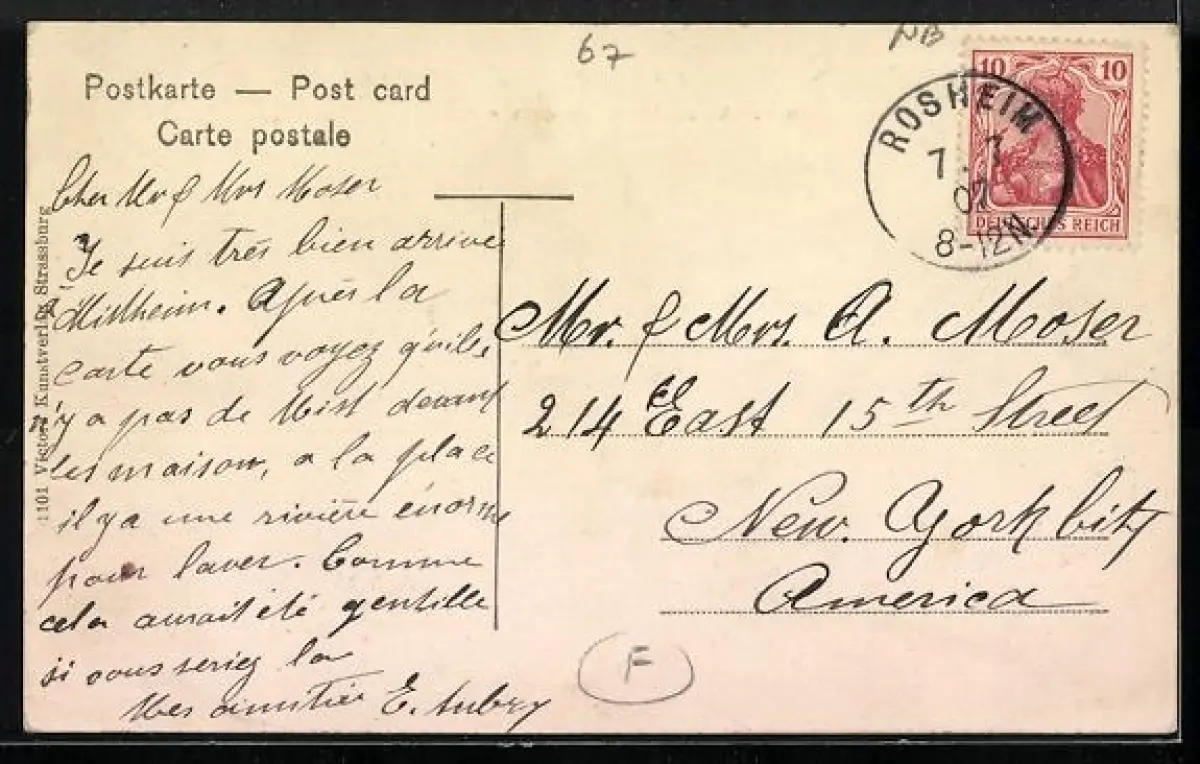 67
NB
Postkarte — Post card
Carte postale
10 10
DEUTSCHES REICH
ROSHEIM
7
07
8-12N
Cher Mr & Mrs Moser
Je suis très bien arrivé
à Millheim. Après la
carte vous voyez qu'ils
n'y a pas de Mist devant
les maison, a la place
il y a une rivière énorme
pour laver. Comme
cela aurait été gentille
si vous seriez la
Mes amitié E. Aubry
Mr. & Mrs. A. Moser
214 East 15th Street
New. York City
America
F
1101 Victor Kunstverlag Strassburg